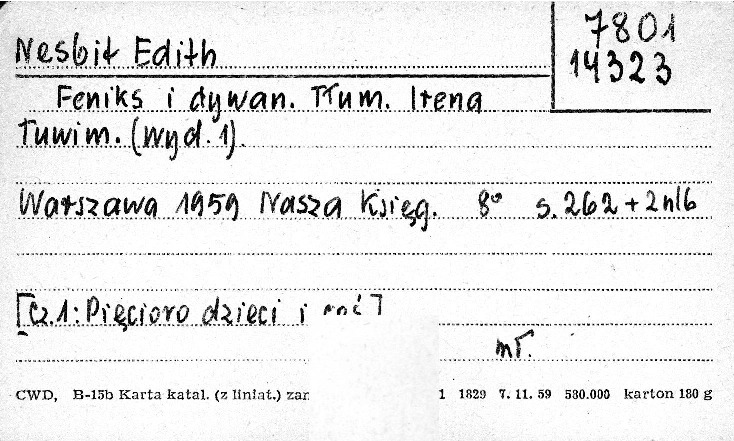 7801
14323
Nesbit Edith
Feniks i dywan. Tłum. Irena
Tuwim. (wyd. 1).
Warszawa 1959 Nasza Księg. 8° s. 262 + 2 nlb
[Cz. 1: Pięcioro dzieci i ]
mT.
CWD, B-15b Karta katal. (z liniat.) zar 1 1829 7. 11. 59 530.000 karton 180 g